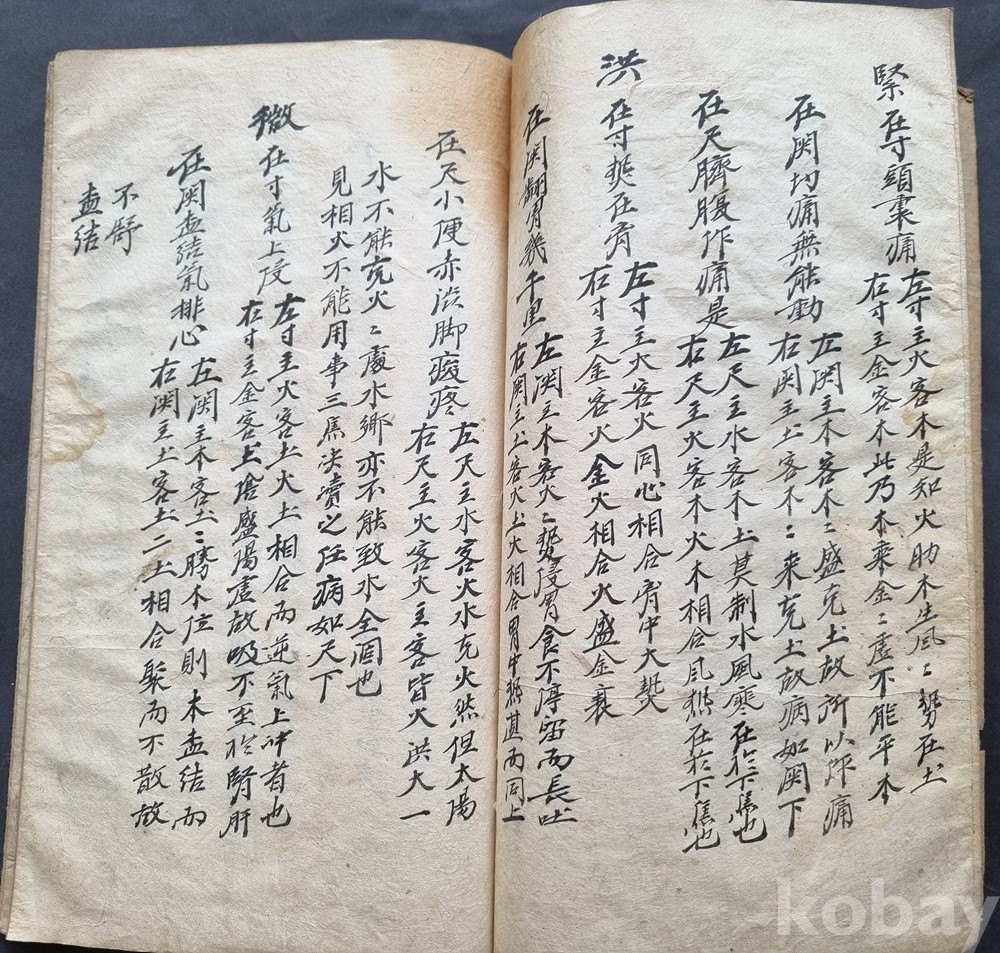 緊 在寸頭裏痛 左寸主火客木是知火肋木生風〻勢在上
右寸主金客木此乃本乘金〻虛不能平木
在関切痛無能動 左関主木客木〻盛克土故所以作痛
右関主土客木〻来克土故病如関下
在尺臍腹作痛是 左尺主水客木土莫制水風寒在於下焦也
右尺主火客木火木相合風熱在於下焦也
洪 在寸热在胷 左寸主火客火同心相合胷中大热
右寸主金客火金火相合火盛金衰
在関翻胃幾千里 左関主木客火〻勢侵胃食不停留而長吐
右関主土客火土火相合胃中热甚而同上
在尺小便赤澁脚痠疼 左尺主水客火水克火然但太陽
右尺主火客火主客皆火洪大一
水不能克火〻處水鄉亦不能致水全涸也
見相火不能用事三焦决瀆之任病如尺下
微 在寸氣上侵 左寸主火客土火土相合而逆氣上冲者也
右寸主金客土陰盛陽虛故吸不至於腎肝
在関盍结氣排心 左関主木客土〻勝木位則木盍结而
右関主土客土二土相合聚而不散故
不舒
盍结
kobay